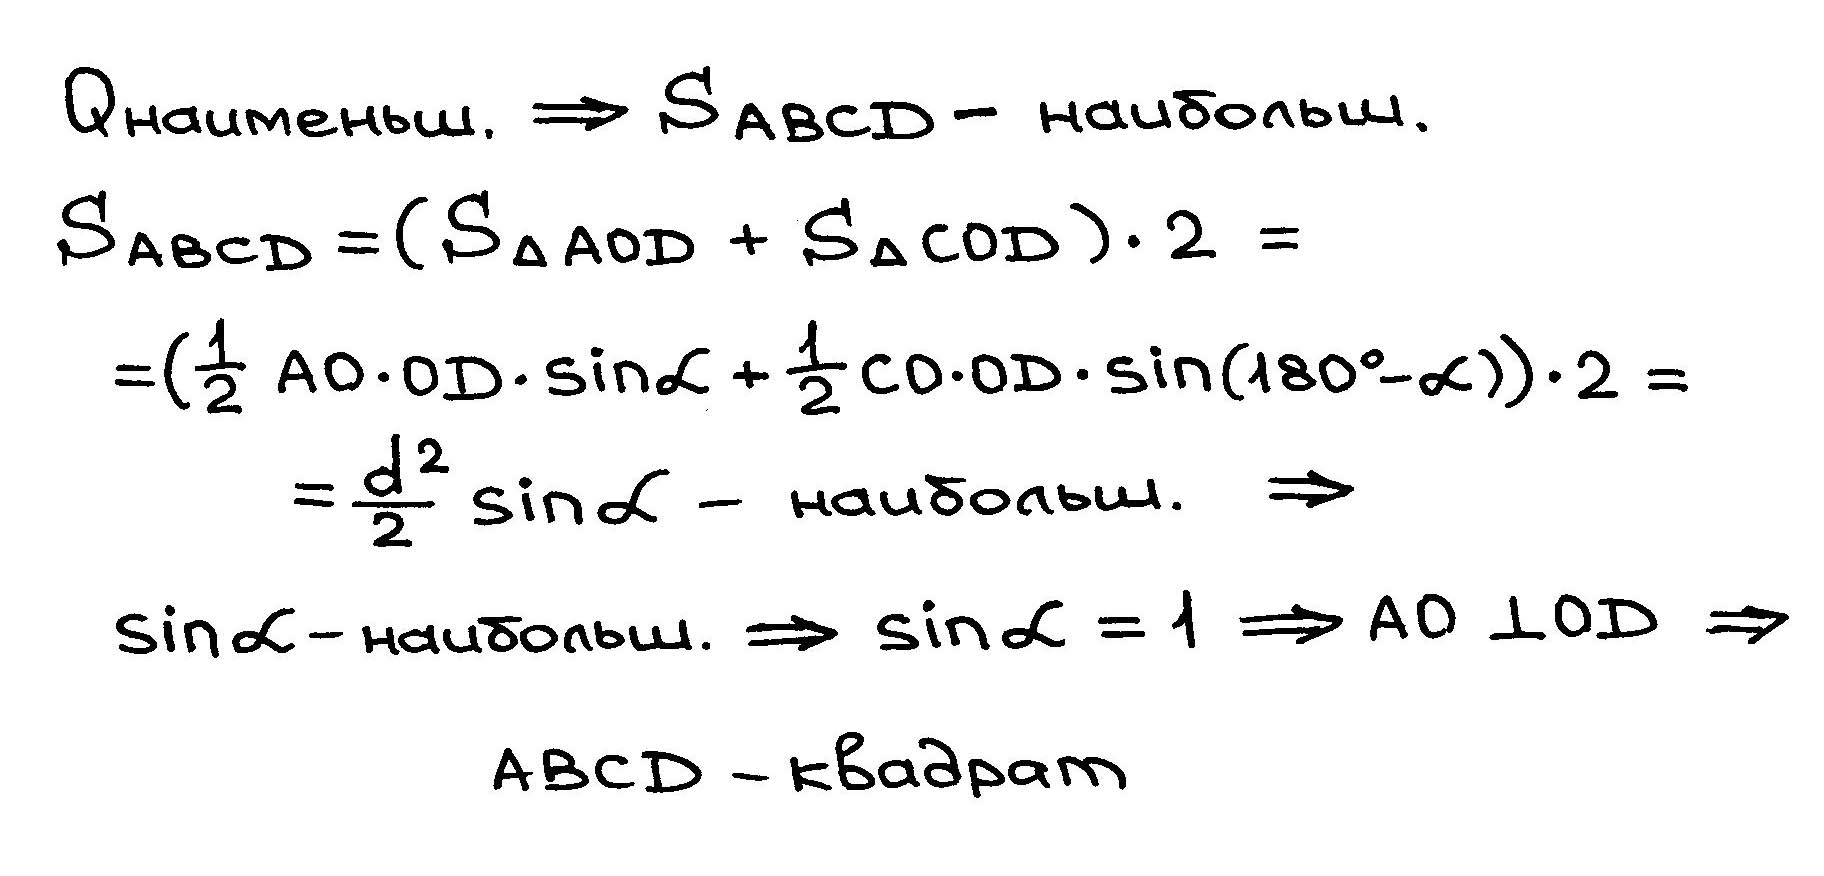 Qнаименьш. ⇒ S ABCD - наибольш.
S ABCD = (S △ AOD + S △ COD) · 2 =
= (1/2 AO · OD · sin α + 1/2 CO · OD · sin(180° - α)) · 2 =
= d²/2 sin α - наибольш. ⇒
sin α - наибольш. ⇒ sin α = 1 ⇒ AO ⊥ OD ⇒
ABCD - квадрат